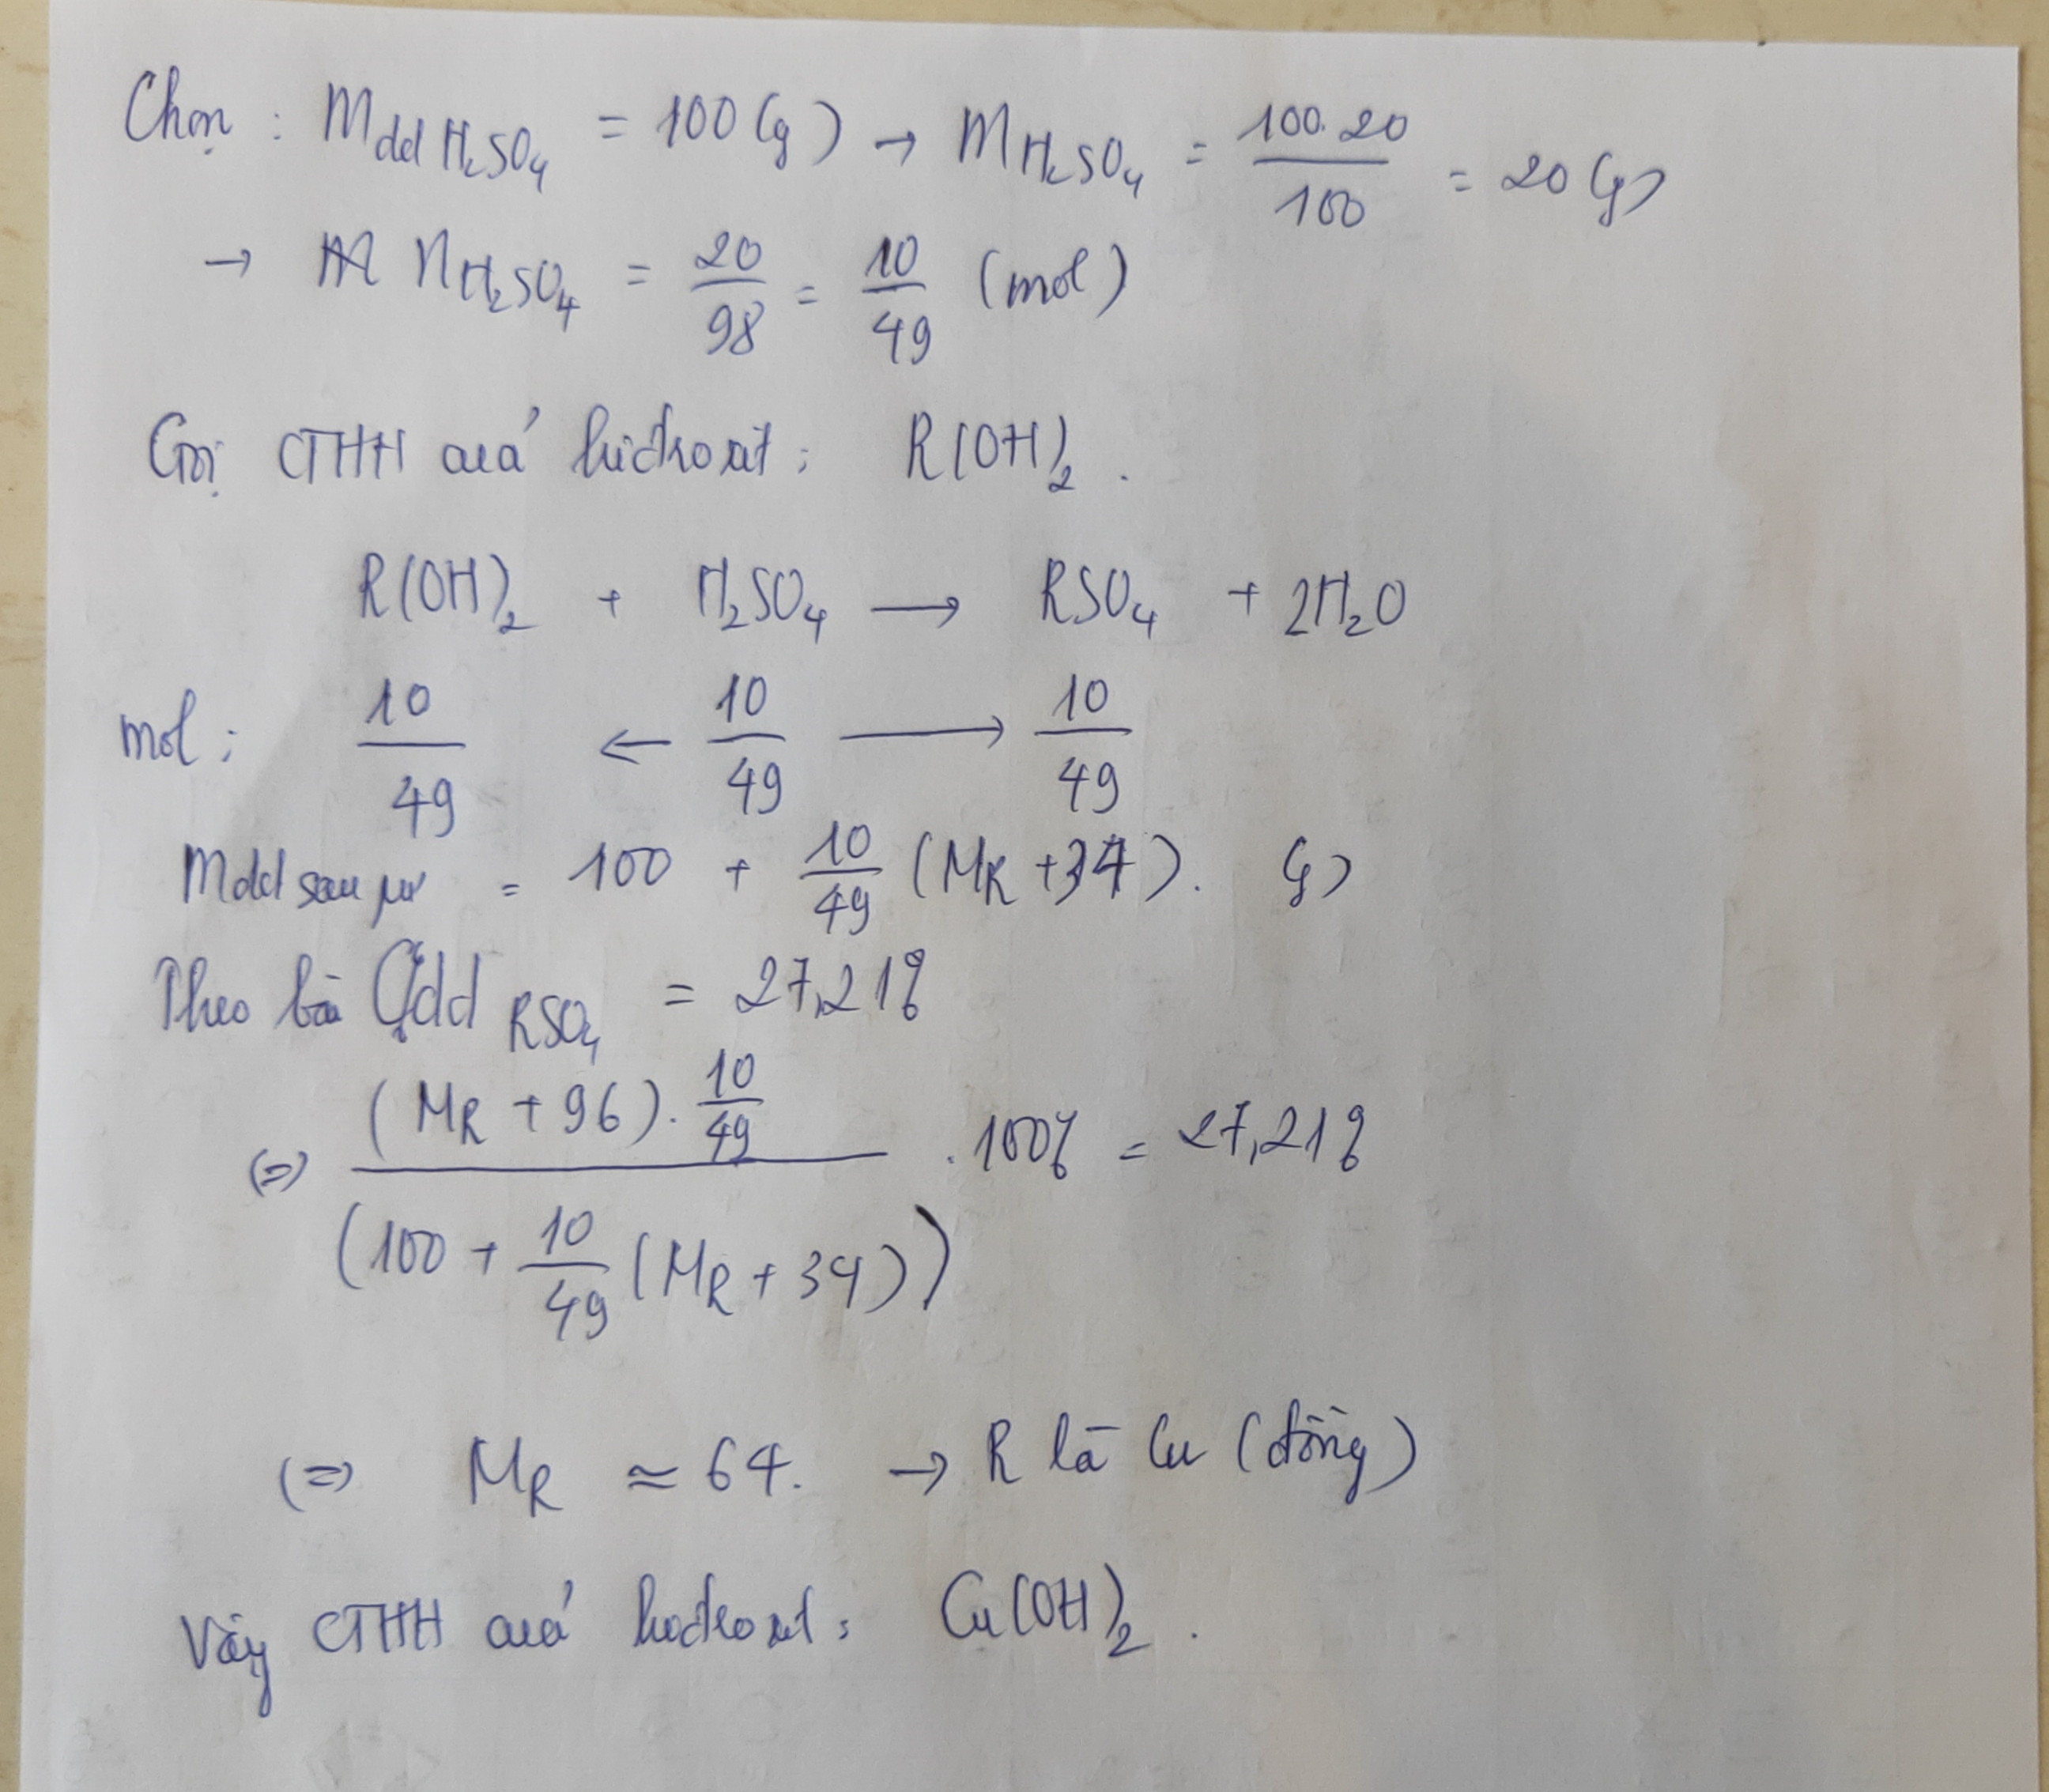 Chọn : mdd H2SO4 = 100 (g) → mH2SO4 = 100.20/100 = 20 (g)
→ nH2SO4 = 20/98 = 10/49 (mol)
Gọi CTHH của hiđroxit : R(OH)2 .
R(OH)2 + H2SO4 → RSO4 + 2H2O
mol : 10/49 ← 10/49 → 10/49
mdd sau pư = 100 + 10/49 (MR + 34). (g)
Theo bài C% dd RSO4 = 27,21%
(=) (MR + 96) . 10/49 / (100 + 10/49 (MR + 34)) . 100% = 27,21%
(=) MR ≈ 64. → R là Cu (đồng)
Vậy CTHH của hiđroxit : Cu(OH)2 .